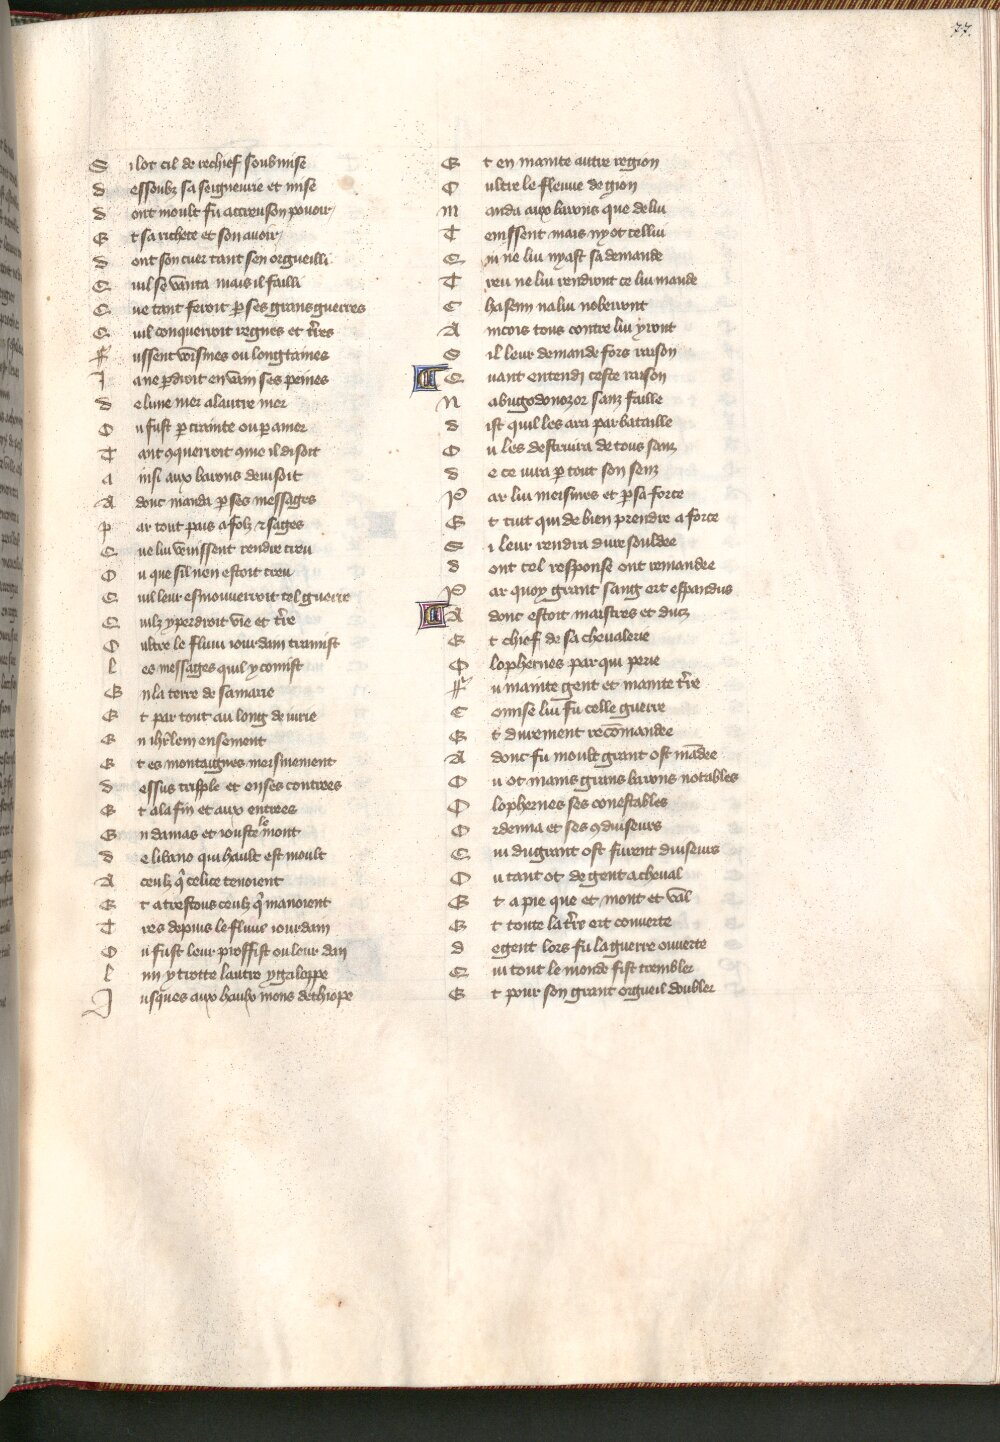 77.
S ilot cil de rechief soubmise
d essoubz sa seigneurie et mise
d ont moult fu accreu son pouoir
E t sa richece et son auoir
d ont son cuer tant sen orgueilli
Q uil se vanta mais il failli
Q ue tant feroit p ses grans guerres
Q uil conquerroit regnes et tres
ff ussent voisines ou longtaines
J a ne pdroit en vain ses peines
d e lune mer a lautre mer
O u fust p crainte ou p amer
T ant 9querroit 9me il disoit
a insi aux barons deuisoit
A donc manda p ses messages
p ar tout pais a folz et sages
Q ue lui venissent rendre treu
O u que sil nen estoit creu
Q uil leur esmouuerroit tel guerre
Q uilz y perdroit vie et tre
O ultre le fluui iourdain tramist
l es messages quil y comist
E n la terre de samarie
E t par tout au long de surie
E n ihrlem ensement
E t es montaignes meismement
d essus tripple et en ses contrees
E t a la fin et aux entrees
E n damas et iouste le mont
d e libano qui hault est moult
A ceulz q celice tenoient
E t a trestous ceulz q manoient
T res depuis le fluus iourdain
O u fust leur proffist ou leur dan
l un y trotte lautre y galoppe
J usques aux haulx mons dethiope
E t en mainte autre region
O ultre le fleuue de gion
m anda aux barons que de lui
T enissent mais ny ot cellui
Q ui ne lui nyast sa demande
T reu ne lui rendront ce lui mande
C hascun na lui nobeiront
A incois tous contre lui yront
S il leur demande fors raison
Q uant entendi ceste raison
N abugodonozor sanz faille
d ist quil les ara par bataille
O u les destruira de tous sans
d e ce iura p tout son sens
P ar lui meismes et p sa force
E t tuit qui de bien prendre a force
S i leur rendra dure souldee
d ont tel response ont remandee
P ar quoy grant sang ert espandus
A donc estoit maistres et ducz
E t chief de sa cheualerie
O lophernes par qui perie
ff u mainte gent et mainte tre
C omise lui fu celle guerre
E t durement recomandee
A donc fu moult grant ost madee
O u ot mains grans barons notables
O lophernes ses conestables
O rdenna et ses 9duiseurs
Q ui du grant ost furent duiseurs
O u tant ot de gent a cheual
E t a pie que et mont et val
E t toute la tre ert couuerte
d e gent lors fu la guerre ouuerte
Q ui tout le monde fist trembler
E t pour son grant orgueil doubler